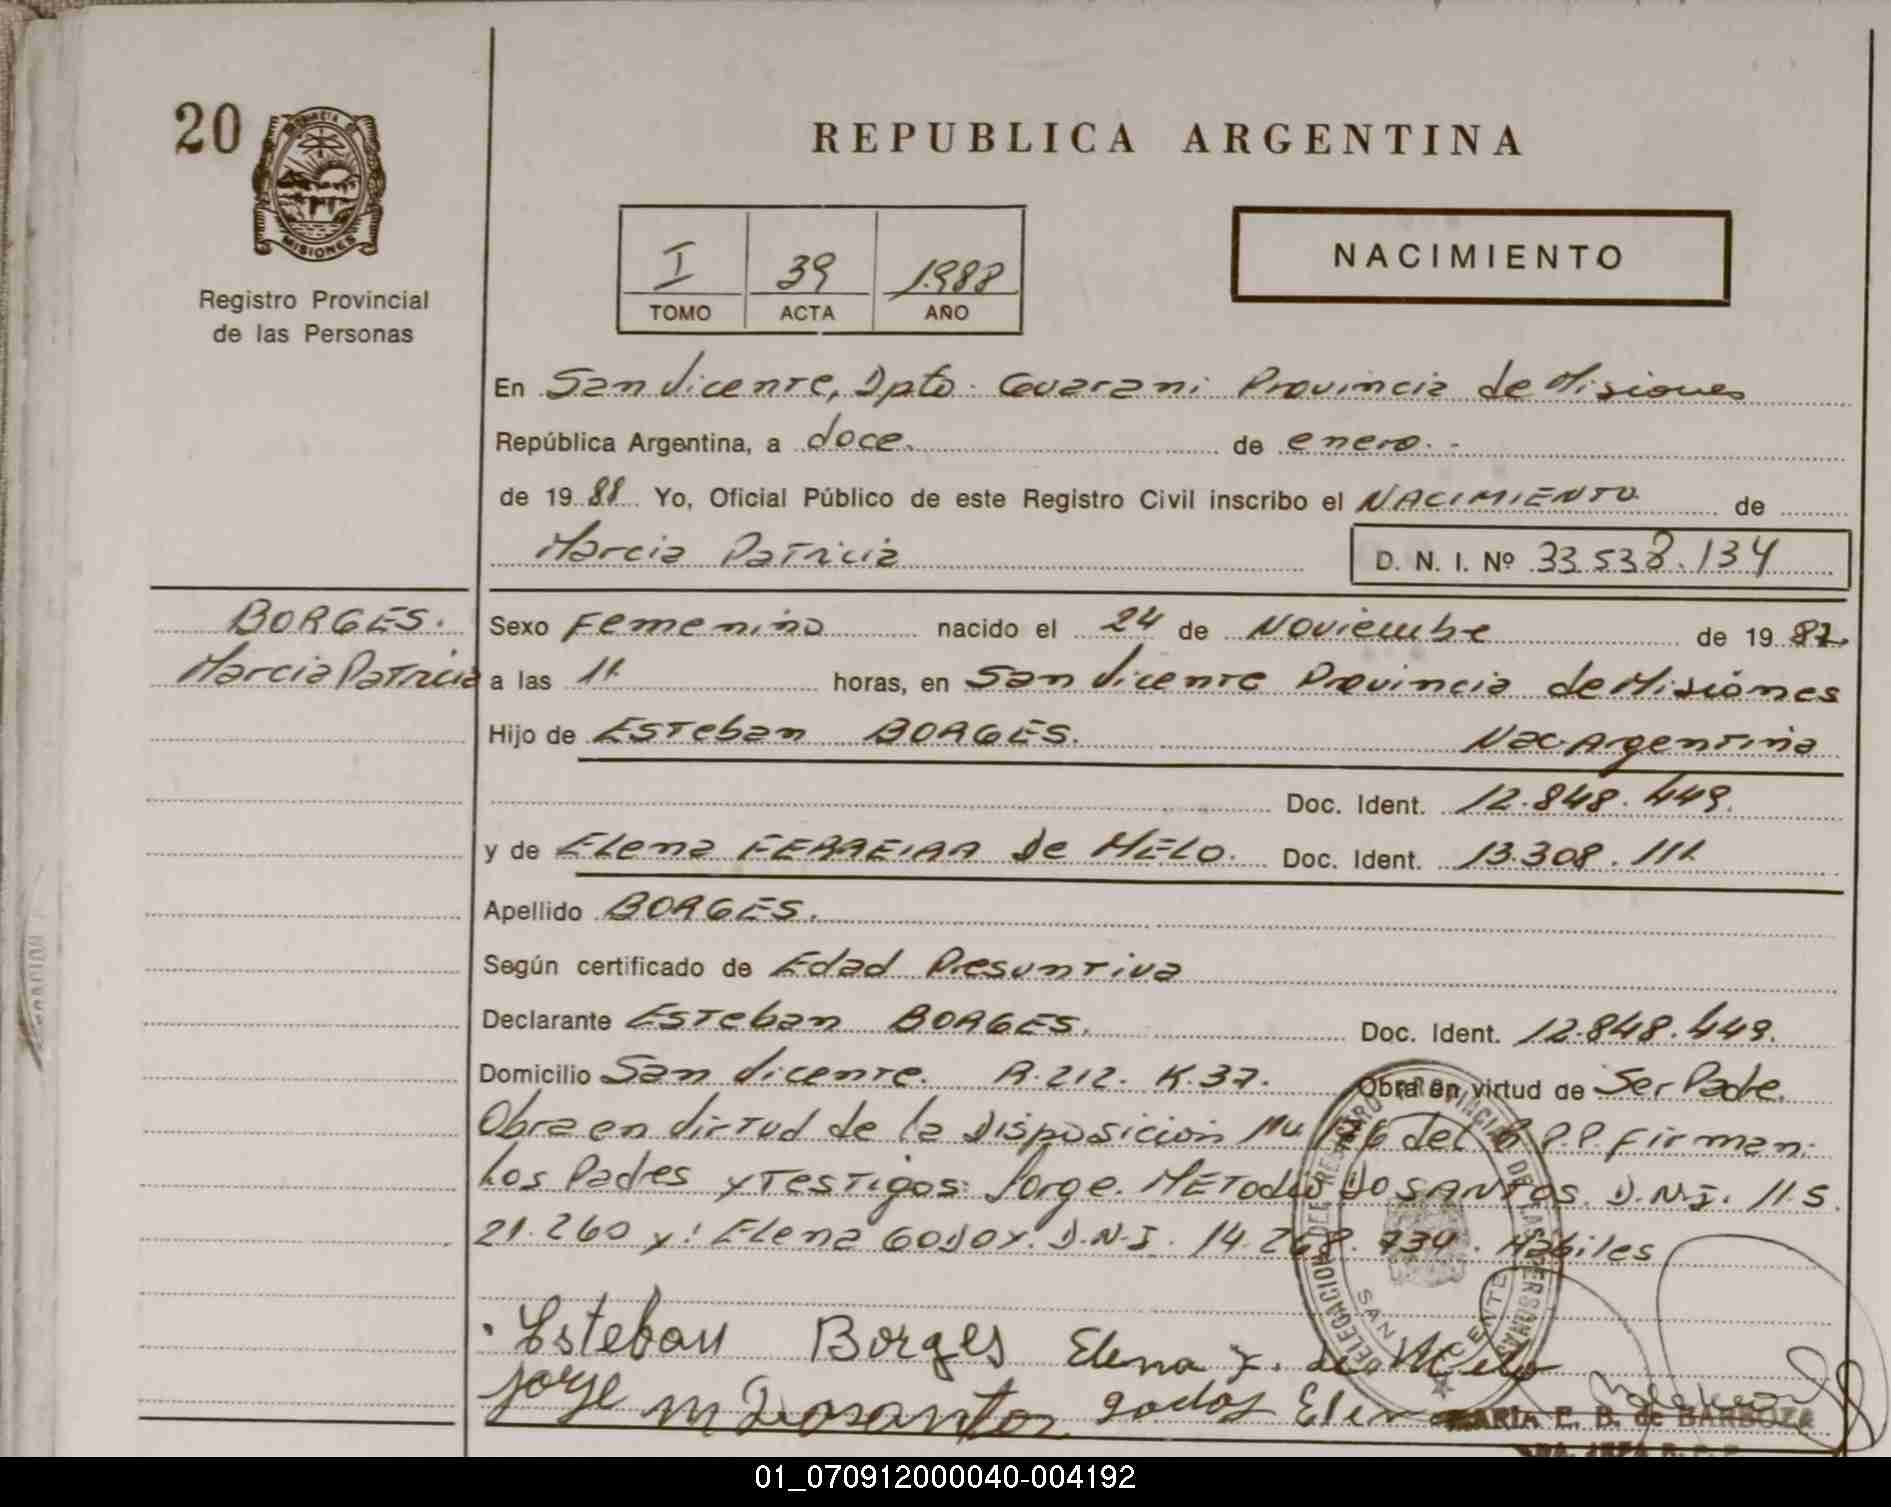 20
PROVINCIA DE
MISIONES
Registro Provincial
de las Personas
REPUBLICA ARGENTINA
I 39 1988
TOMO ACTA AÑO
NACIMIENTO
En San Vicente, Dpto. Guarani Provincia de Misiones
República Argentina, a doce. de enero. -
de 19 88 Yo, Oficial Público de este Registro Civil inscribo el NACIMIENTO de
Marcia Patricia D. N. I. Nº 33.538.134
BORGES.
Marcia Patricia
Sexo Femenino nacido el 24 de Noviembre de 19 87.
a las 11. horas, en San Vicente Provincia de Misiones
Hijo de Esteban BORGES. Nac. Argentina
Doc. Ident. 12.848.449.
y de Elena FERREIRA De MELO. Doc. Ident. 13.308.111.
Apellido BORGES.
Según certificado de Edad Presuntiva
Declarante Esteban BORGES. Doc. Ident. 12.848.449.
Domicilio San Vicente. R.212. K.37. Obra en virtud de Ser Padre.
Obra en Virtud de la Disposicion del R.P.P. Firman:
Los Padres y Testigos: Jorge. METodio DO SANTOS. D.N.I. 11.5
21.260 y: Elena GODOY. D.N.I. 14.268.730. Habiles
Esteban Borges Elena F. de Melo
Jorge m Dosantos godoy Elena
DELEGACION DEL REGISTRO PROVINCIAL DE LAS PERSONAS
SAN VICENTE
MARIA E. B. de BARBOZA
01_070912000040-004192